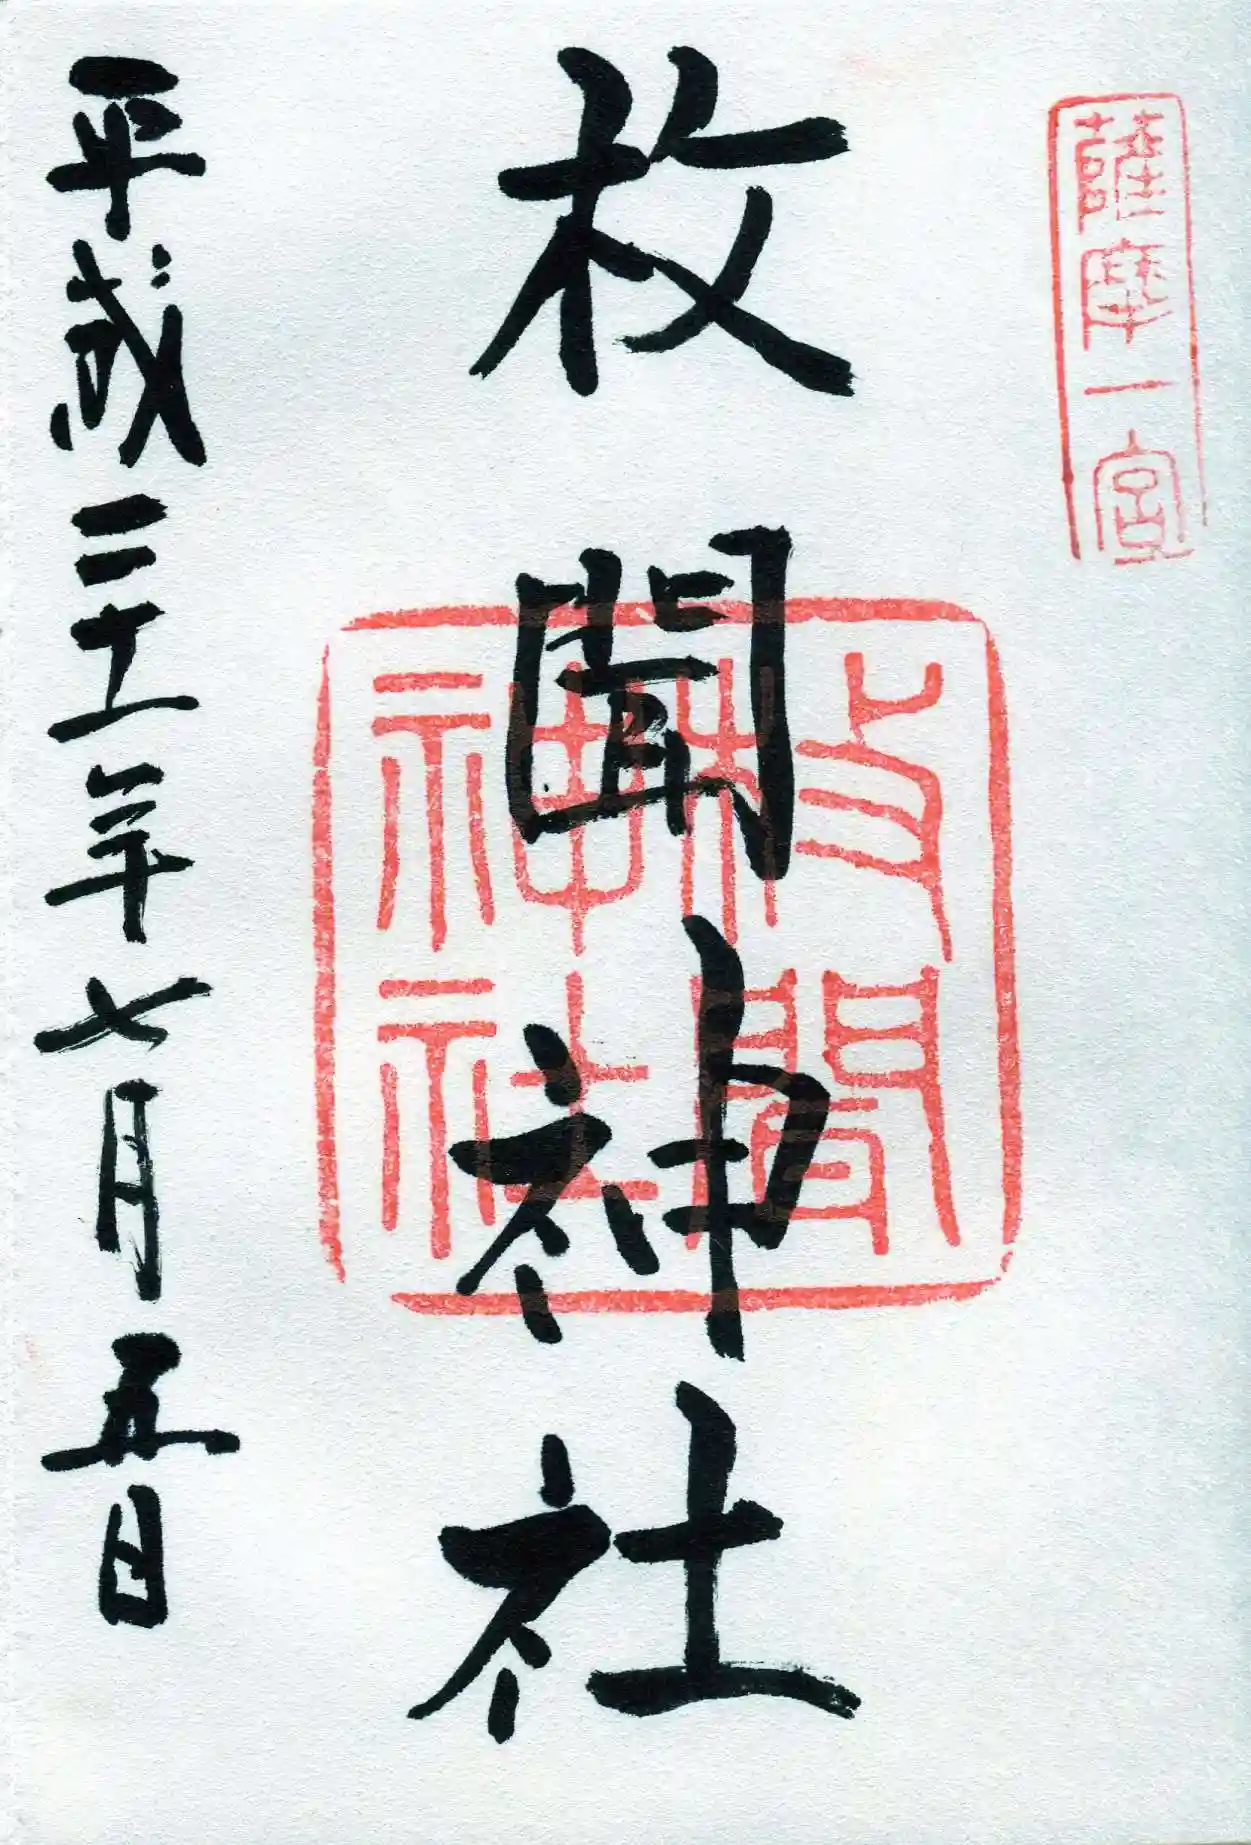 薩摩一宮
枚聞神社
枚聞
神社
平成二十一年七月五日